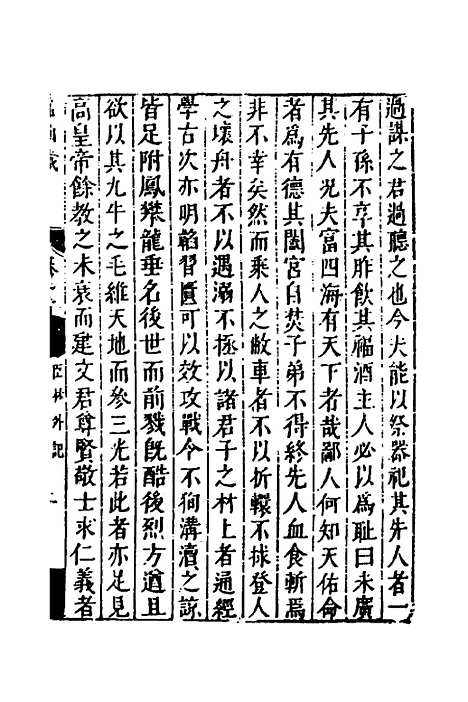 過謀之君過聽之也今夫能以祭器祀其先人者一
有子孫不享其胙飲其福酒主人必以爲耻曰未廣
其先人况夫富四海有天下者哉鄙人何知天佑命
者爲有德其闔宮自焚子弟不得終先人血食斬焉
非不幸矣然而乘人之敝車者不以折轅不拯登人
之壞舟者不以遇溺不拯以諸君子之材上者通經
學古次亦明韜習匱可以效攻戰令不徇溝瀆之諒
皆足附鳳攀龍垂名後世而前戮旣酷後烈方遒且
欲以其九牛之毛維天地而參三光若此者亦足見
高皇帝餘教之未衰而建文君尊賢敬士求仁義者
臣林外記